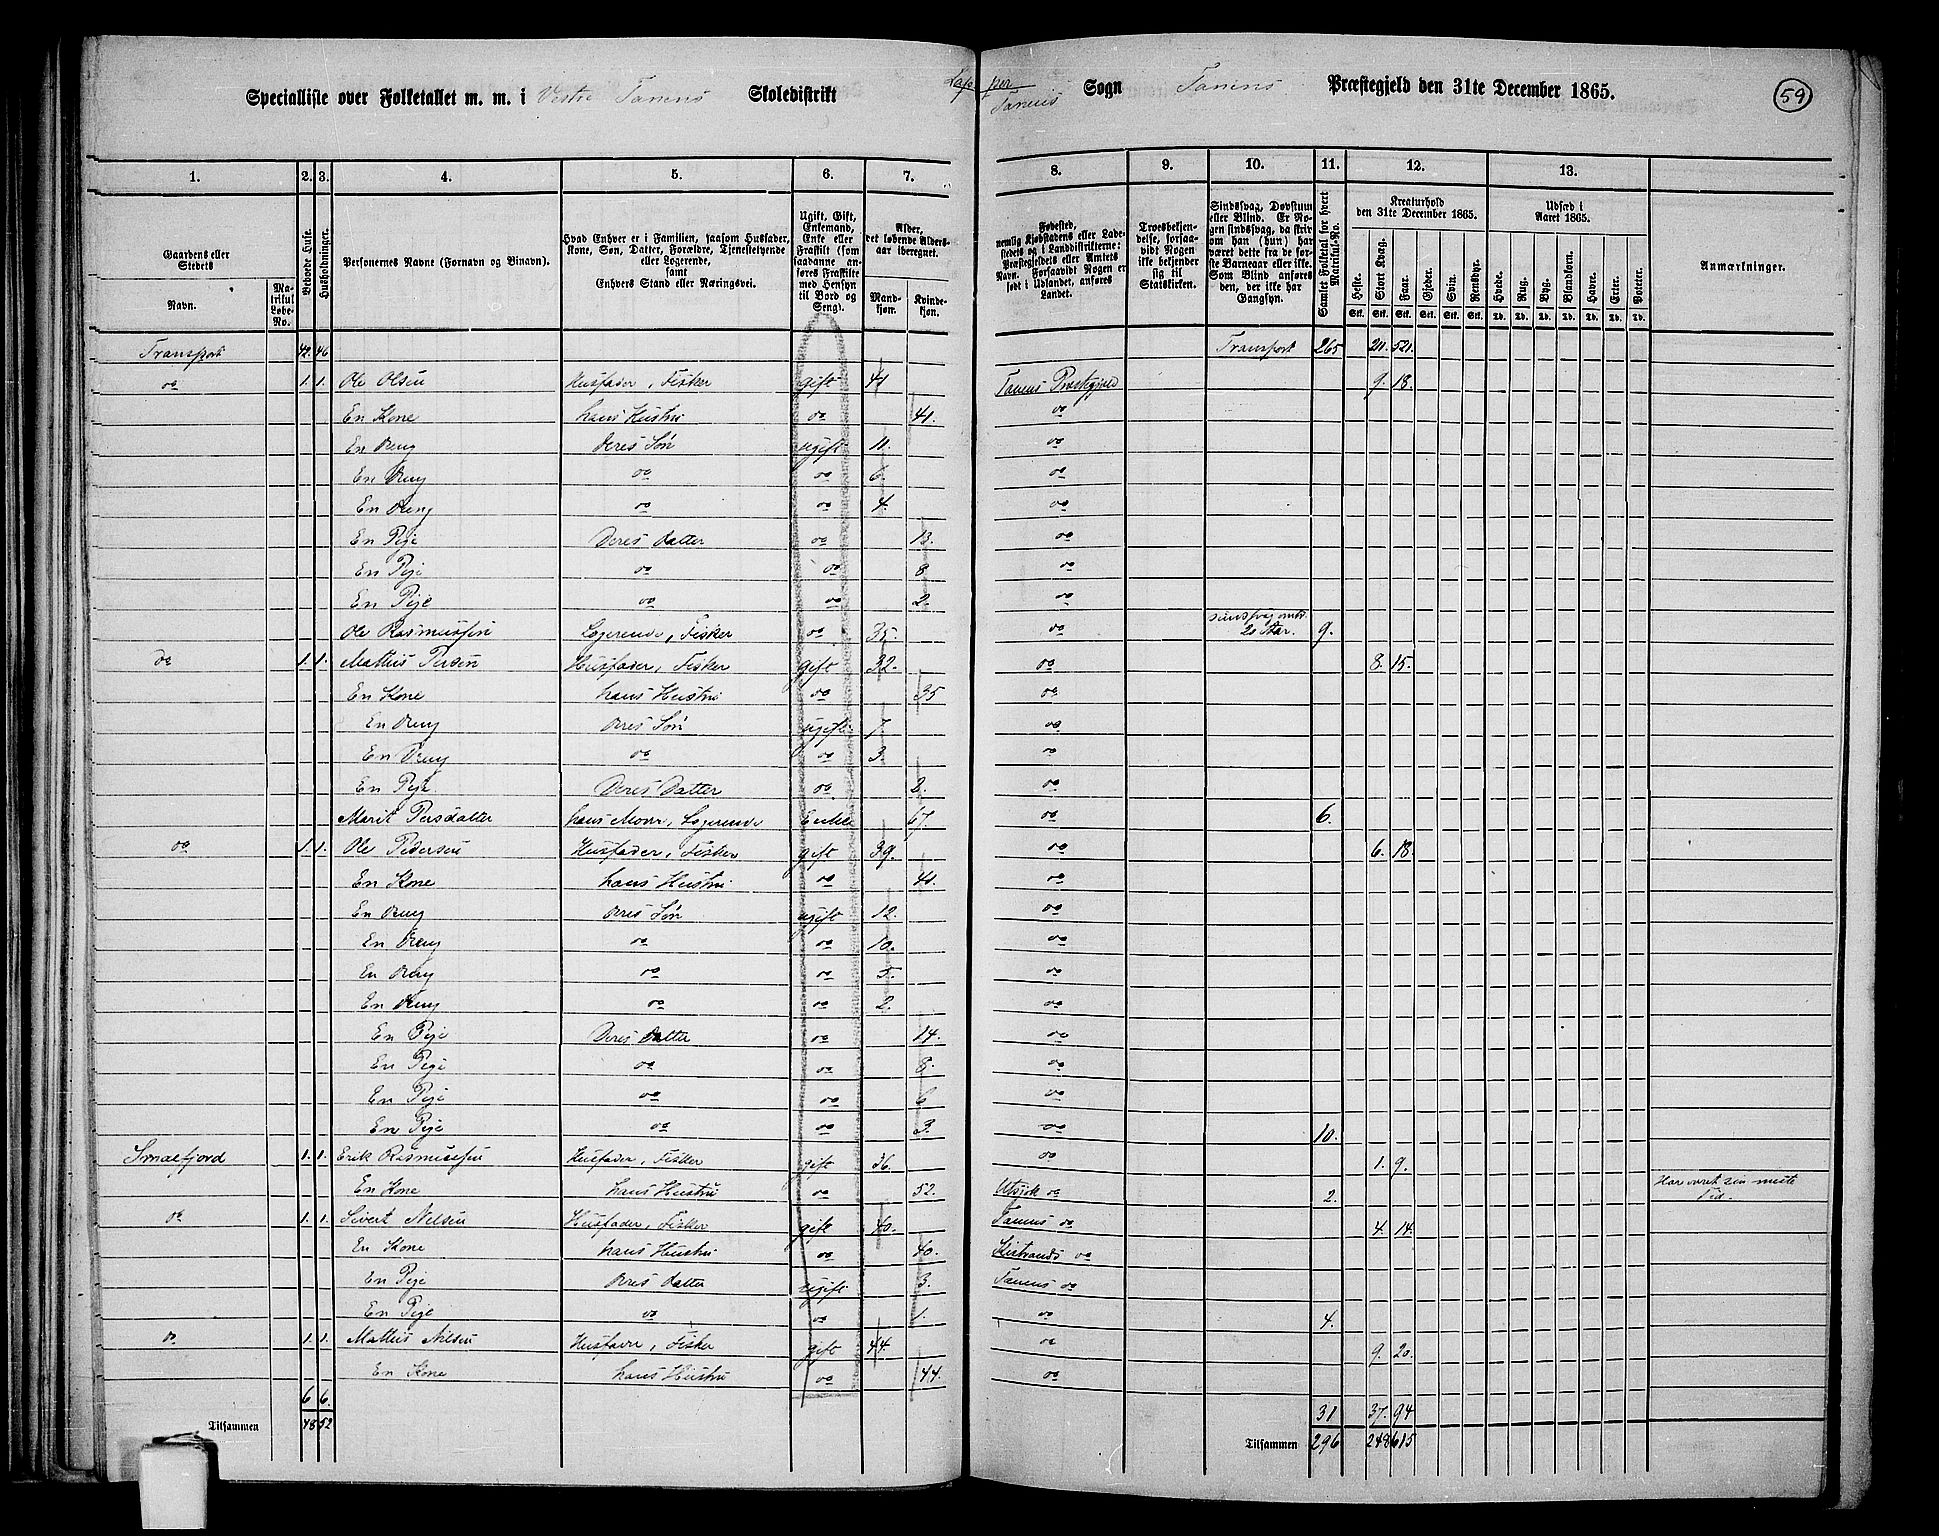 Specialliste over Folketallet m. m. i Vestre Tanens Skoledistrikt Tanens Sogn Tanens Præstegjeld den 31te December 1865. 59
1. 2. 3. 4. 5. 6. 7. 8. 9. 10. 11. 12. 13.
Gaardens eller Stedets
Navn.
Matrikul Løbe-No.
Beboede Huse.
Husholdninger.
Personernes Navne (Fornavn og Binavn).
Hvad Enhver er i Familien, saasom Husfader, Kone, Søn, Datter, Forældre, Tjenestetyende eller Logerende, samt Enhvers Stand eller Næringsvei.
Ugift, Gift, Enkemand, Enke eller Fraskilt (som saadanne anføres Fraskilte med Hensyn til Bord og Seng).
Alder, det løbende Alders-aar iberegnet.
Mandkjøn.
Kvindekjøn.
Fødested, nemlig Kjøbstadens eller Ladestedets og i Landdistrikterne: Præstegjeldets eller Amtets Navn. Forsaavidt Nogen er født i Udlandet, anføres Landet.
Troesbekjendelse, forsaavidt Nogen ikke bekjender sig til Statskirken.
Sindssvag, Døvstum eller Blind. Er Nogen sindssvag, da skrives om han (hun) har været dette fra de første Barneaar eller ikke. Som Blind anføres den, der ikke har Gangsyn.
Samlet Folketal for hvert Matrikul-No.
Kreaturhold den 31te December 1865.
Heste. Stort Kvæg. Faar. Gjeder. Svin. Rensdyr.
Udsæd i Aaret 1865.
Hvede. Rug. Byg. Blandkorn. Havre. Erter. Poteter.
Anmærkninger.
Transport 42. 46 Transport 265 211. 521.
do 1. 1. Ole Olsen Husfader, Fisker gift 41 Tanens Præstegjeld 9. 18.
En Kone hans Hustru do 41. do
En Dreng Deres Søn ugift 11. do
En Dreng do do 6. do
En Dreng do do 4. do
En Pige Deres Datter do 13. do
En Pige do do 8 do
En Pige do do 2. do
Ole Rasmussen Logerende, Fisker do 35. do 20 Aar. 9.
do 1. 1. Mathis Persen Husfader, Fisker gift 32. do 8. 15.
En Kone hans Hustru do 35 do
En Dreng Deres Søn ugift 7 do
En Dreng do do 3 do
En Pige Deres Datter do 2. do
Marit Persdatter hans Moder, Logerende Enke 67. do 6.
do 1. 1. Ole Pedersen Husfader, Fisker gift 39. do 6. 18.
En Kone hans Hustru do 41. do
En Dreng Deres Søn ugift 12. do
En Dreng do do 10. do
En Dreng do do 5. do
En Dreng do do 2. do
En Pige Deres Datter do 14. do
En Pige do do 8. do
En Pige do do 6 do
En Pige do do 3. do 10.
Smalfjord 1. 1. Erik Rasmussen Husfader, Fisker gift 36. do 1. 9.
En Kone hans Hustru do 52. Utsjok do 2. Har været sin meste Tid.
do 1. 1. Sivert Nilsen Husfader, Fisker gift 40. Tanens do 4. 14.
En Kone hans Hustru do 40. Kistrands do
En Pige Deres Datter ugift 3. Tanens do
En Pige do do 1. do 4.
do 1. 1. Mathis Nilsen Husfader, Fisker gift 44 do 9. 20.
En Kone hans Hustru do 44. do
6 6. 31 37. 94
Tilsammen 48 52 Tilsammen 296 248 615